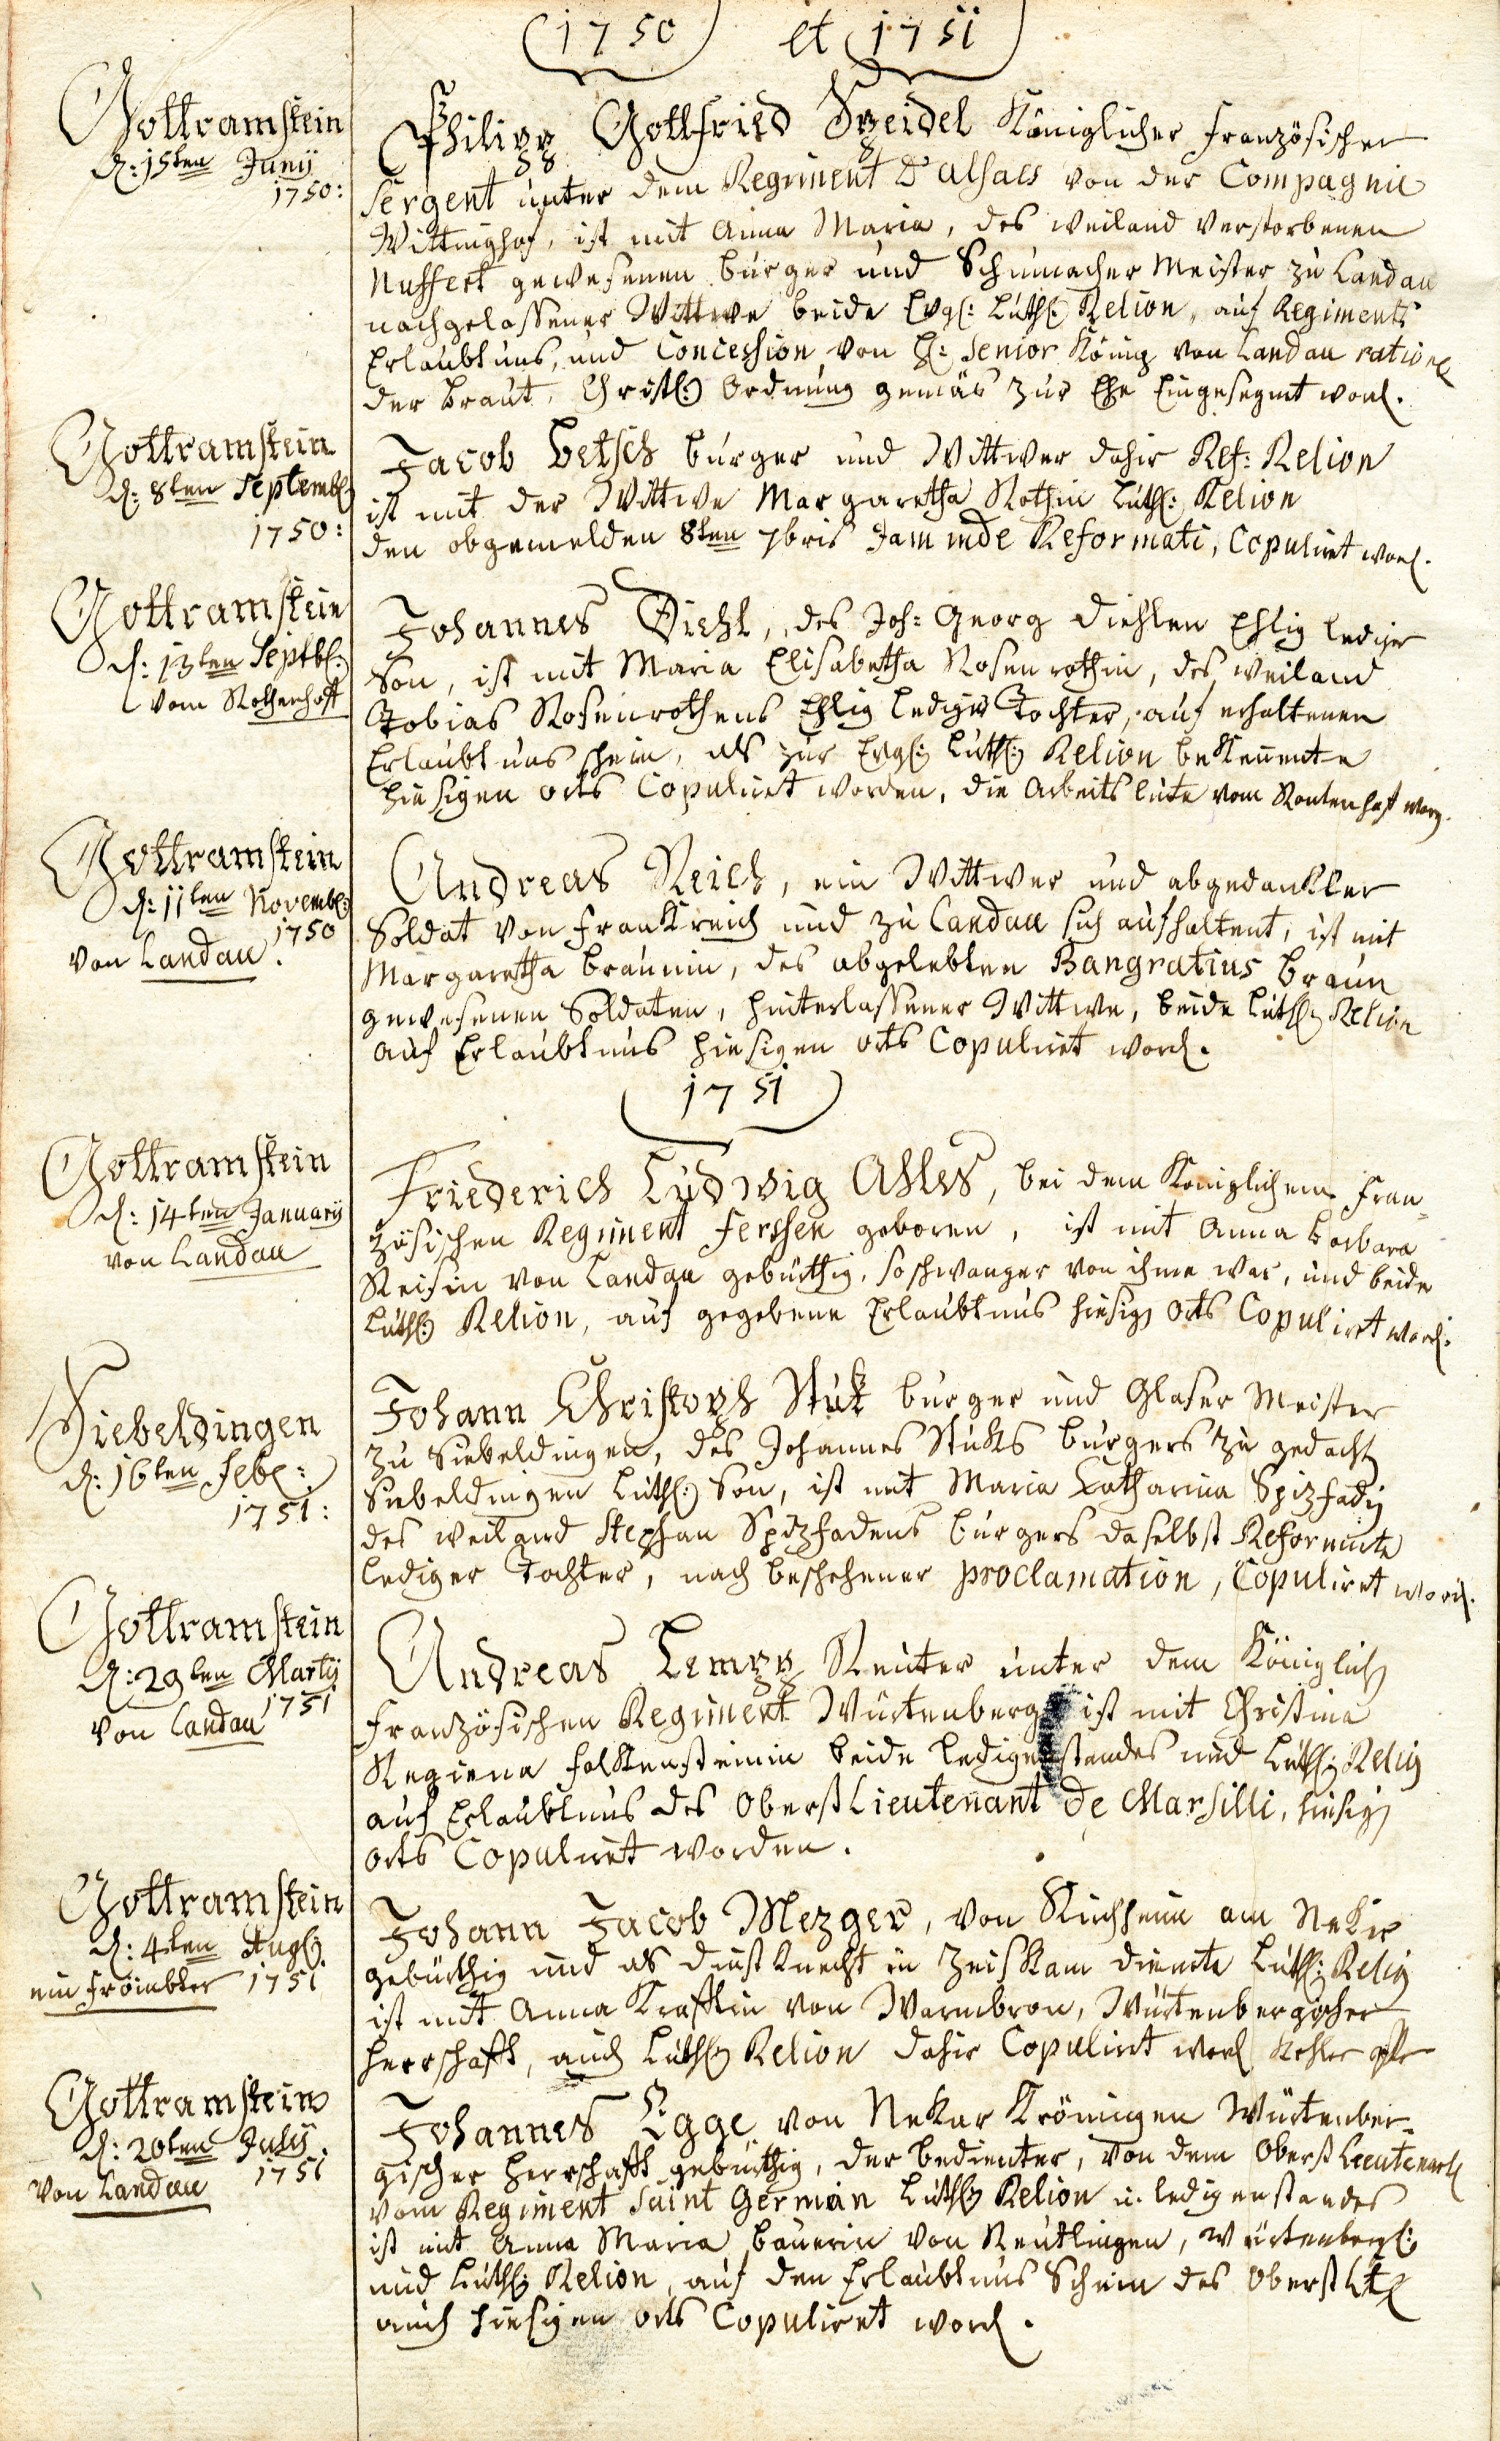 1750 et 1751
Gottramstein
d: 15ten Junÿ
1750:
Philipp Gottfried Speidel Königlicher Französischer
Sergent unter dem Regiment D'alsacs von der Compagnie
Wittinghof, ist mit Anna Maria, des weiland verstorbenen
Nuffert gewesenen burger und Schumacher Meister zu Landau
nachgelassener Wittwe beide Evgl: Luth: Relion, auf Regiments
Erlaubtnus, und Concession von H: Senior König von Landau ratione
der braut, Christl: Ordnung gemäs zur Ehe Eingesegnet word.
Gottramstein
d: 8ten Septemb:
1750:
Jacob Betsch burger und Wittwer dahir Ref: Relion
ist mit der Wittwe Margaretha Rothin Luth: Relion
den obgemelden 8ten 7bris Reformati, Copuliret word.
Gottramstein
d: 13ten Septb:
vom Rothenhoff
Johannes Diehl, des Joh: Georg Diehlen Ehlig lediger
Son, ist mit Maria Elisabetha Rosenrothin, des weiland
Tobias Rosenrothens Ehlig ledigr Tochter, auf erhaltenen
Erlaubtnus schein, als zur Evgl: Luth: Relion bekennente
hiesigen orts Copuliret worden, die Arbeits leute vom
Gottramstein
d: 11ten Novemb:
1750
von Landau.
Andreas Reich, ein Wittwer und abgedankter
Soldat von Frankreich und zu Landau sich aufhaltent, ist mit
Margaretha braunin, des abgelebten Bangratius braun
gewesenen Soldaten, hinterlassener Wittwe, beide Luth: Relion
auf Erlaubtnus hiesigen orts Copuliret word.
1751
Gottramstein
d: 14ten Januarÿ
von Landau
Friederich Ludwig Ahles, bei dem Königlichem Fran-
zösischen Regiment Ferssen geboren, ist mit Anna barbara
Reisin von Landau gebürthig, so schwanger von ihme war, und beide
Luth: Relion, auf gegebene Erlaubtnus hiesig orts Copuliret word.
Siebeldingen
d: 16ten Feb:
1751:
Johann Christoph Stuk burger und Glaser Meister
zu Siebeldingen, des Johannes Stuks burgers zu gedacht
Siebeldingen Luth: Son, ist mit Maria Catharina Spizfadin
des weiland Stephan Spizfadens burgers daselbst Reformirte
lediger Tochter, nach beschehener proclamation, Copuliret word.
Gottramstein
d: 29ten Martÿ
1751
von Landau
Andreas Lempp Reuter unter dem Königlich
Französischen Regiment Würtenberg ist mit Christina
Regiena Falkensteinin beide ledigenstandes und Luth: Relig
auf Erlaubtnus des Oberst Lieutenant de Marsilli, hiesig
orts Copuliret worden.
Gottramstein
d: 4ten Aug:
ein Frömbter 1751
Johann Jacob Mezger, von Kirchheim am Neker
gebürthig und als dinst Knecht in Zeiskam diente Luth: Relig
ist mit Anna Krafftin von Warmbron, Würtenbergischer
Herrschafft, auch Luth: Relion dahir Copuliret word
Gottramstein
d: 20ten Julÿ.
1751
von Landau
Johannes Egge, von Nekar Gröningen Würtenber-
gischer Herrschafft gebürthig, der bedienter, von dem Oberst Lieutenant
vom Regiment Saint Germain Luth: Relion u. ledigenstandes
ist mit Anna Maria bauerin von Reutlingen, Würtenberg:
und Luth: Relion, auf den Erlaubtnus Schein des Oberst Lt:
auch hiesigen orts Copuliret word.